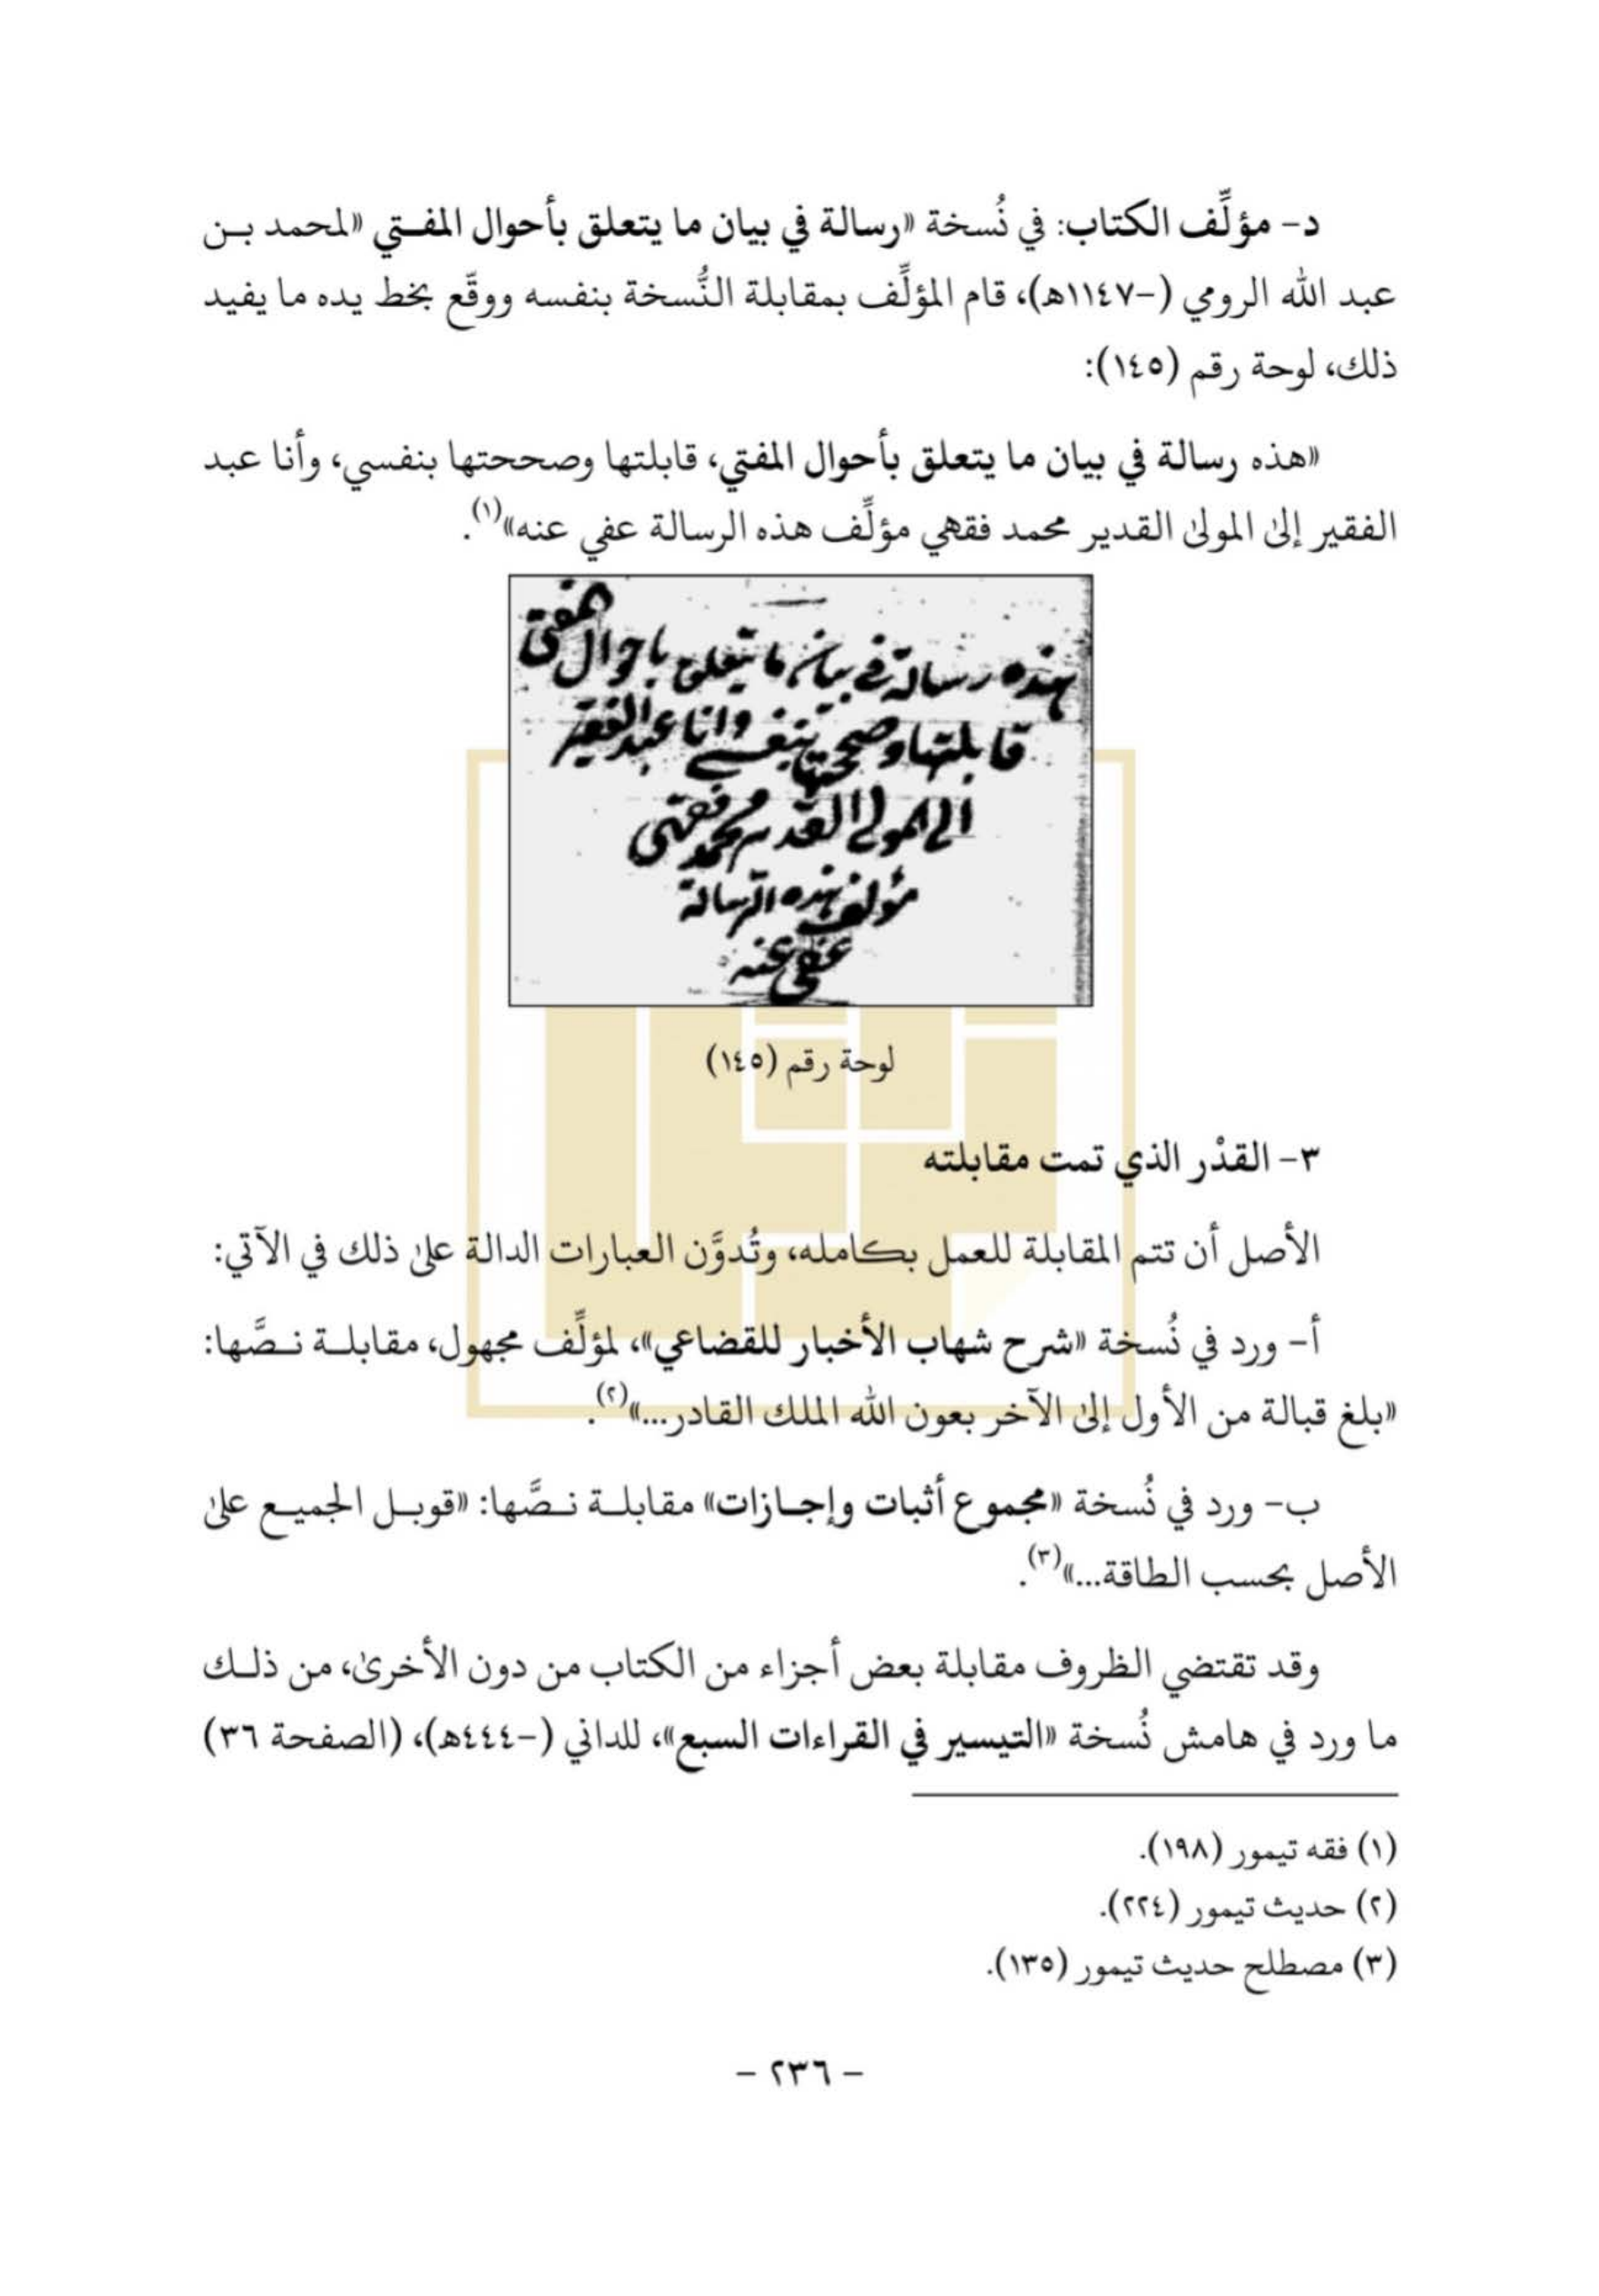 د- مؤلِّف الكتاب: في نُسخة «رسالة في بيان ما يتعلق بأحوال المفـتي «لمحمد بـن
عبد الله الرومي (-١١٤٧هـ)، قام المؤلِّف بمقابلة النُّسخة بنفسه ووقّع بخط يده ما يفيد
ذلك، لوحة رقم (١٤٥):
«هذه رسالة في بيان ما يتعلق بأحوال المفتي، قابلتها وصححتها بنفسي، وأنا عبد
الفقير إلىٰ المولىٰ القدير محمد فقهي مؤلِّف هذه الرسالة عفي عنه»(١).
هذه رسالة في بيان ما يتعلق باحوال المفتي
قابلتها وصححتها بنفسي وانا عبد الفقير
الى المولى القدير محمد فقهي
مؤلف هذه الرسالة
عفي عنه
لوحة رقم (١٤٥)
٣- القدْر الذي تمت مقابلته
الأصل أن تتم المقابلة للعمل بكامله، وتُدوَّن العبارات الدالة علىٰ ذلك في الآتي:
أ- ورد في نُسخة «شرح شهاب الأخبار للقضاعي»، لمؤلِّف مجهول، مقابلـة نـصَّها:
«بلغ قبالة من الأول إلىٰ الآخر بعون الله الملك القادر...»(٢).
ب- ورد في نُسخة «مجموع أثبات وإجـازات» مقابلـة نـصَّها: «قوبـل الجميـع علىٰ
الأصل بحسب الطاقة...»(٣).
وقد تقتضي الظروف مقابلة بعض أجزاء من الكتاب من دون الأخرىٰ، من ذلـك
ما ورد في هامش نُسخة «التيسير في القراءات السبع»، للداني (-٤٤٤هـ)، (الصفحة ٣٦)
(١) فقه تيمور (١٩٨).
(٢) حديث تيمور (٢٢٤).
(٣) مصطلح حديث تيمور (١٣٥).
- ٢٣٦ -